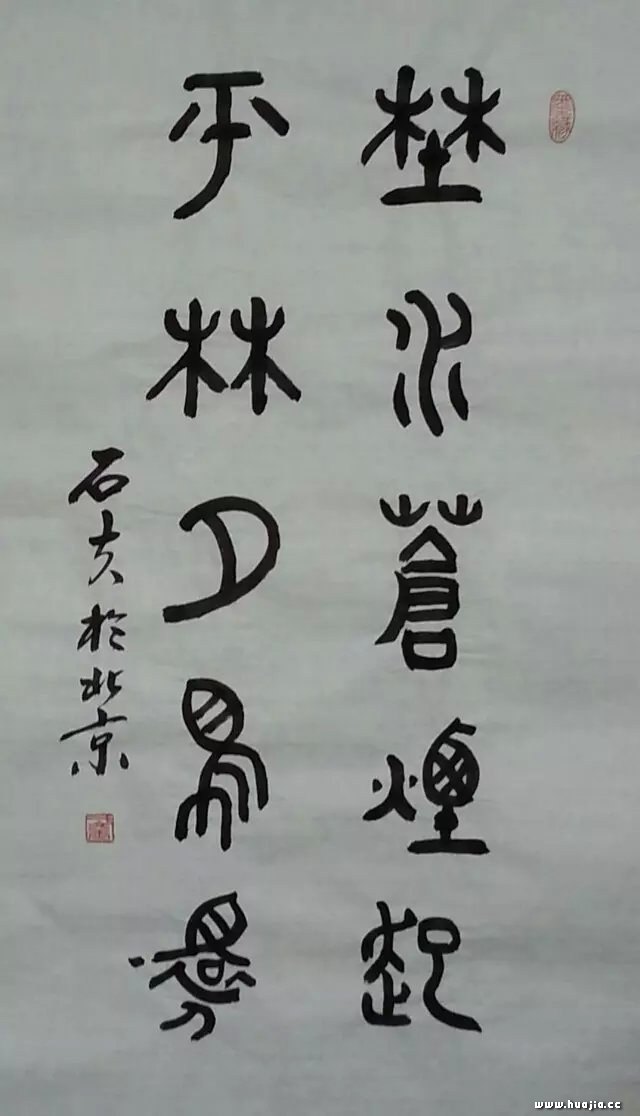 埜水蒼煙起
平林夕鳥還
石於北京
www.huajia.cc